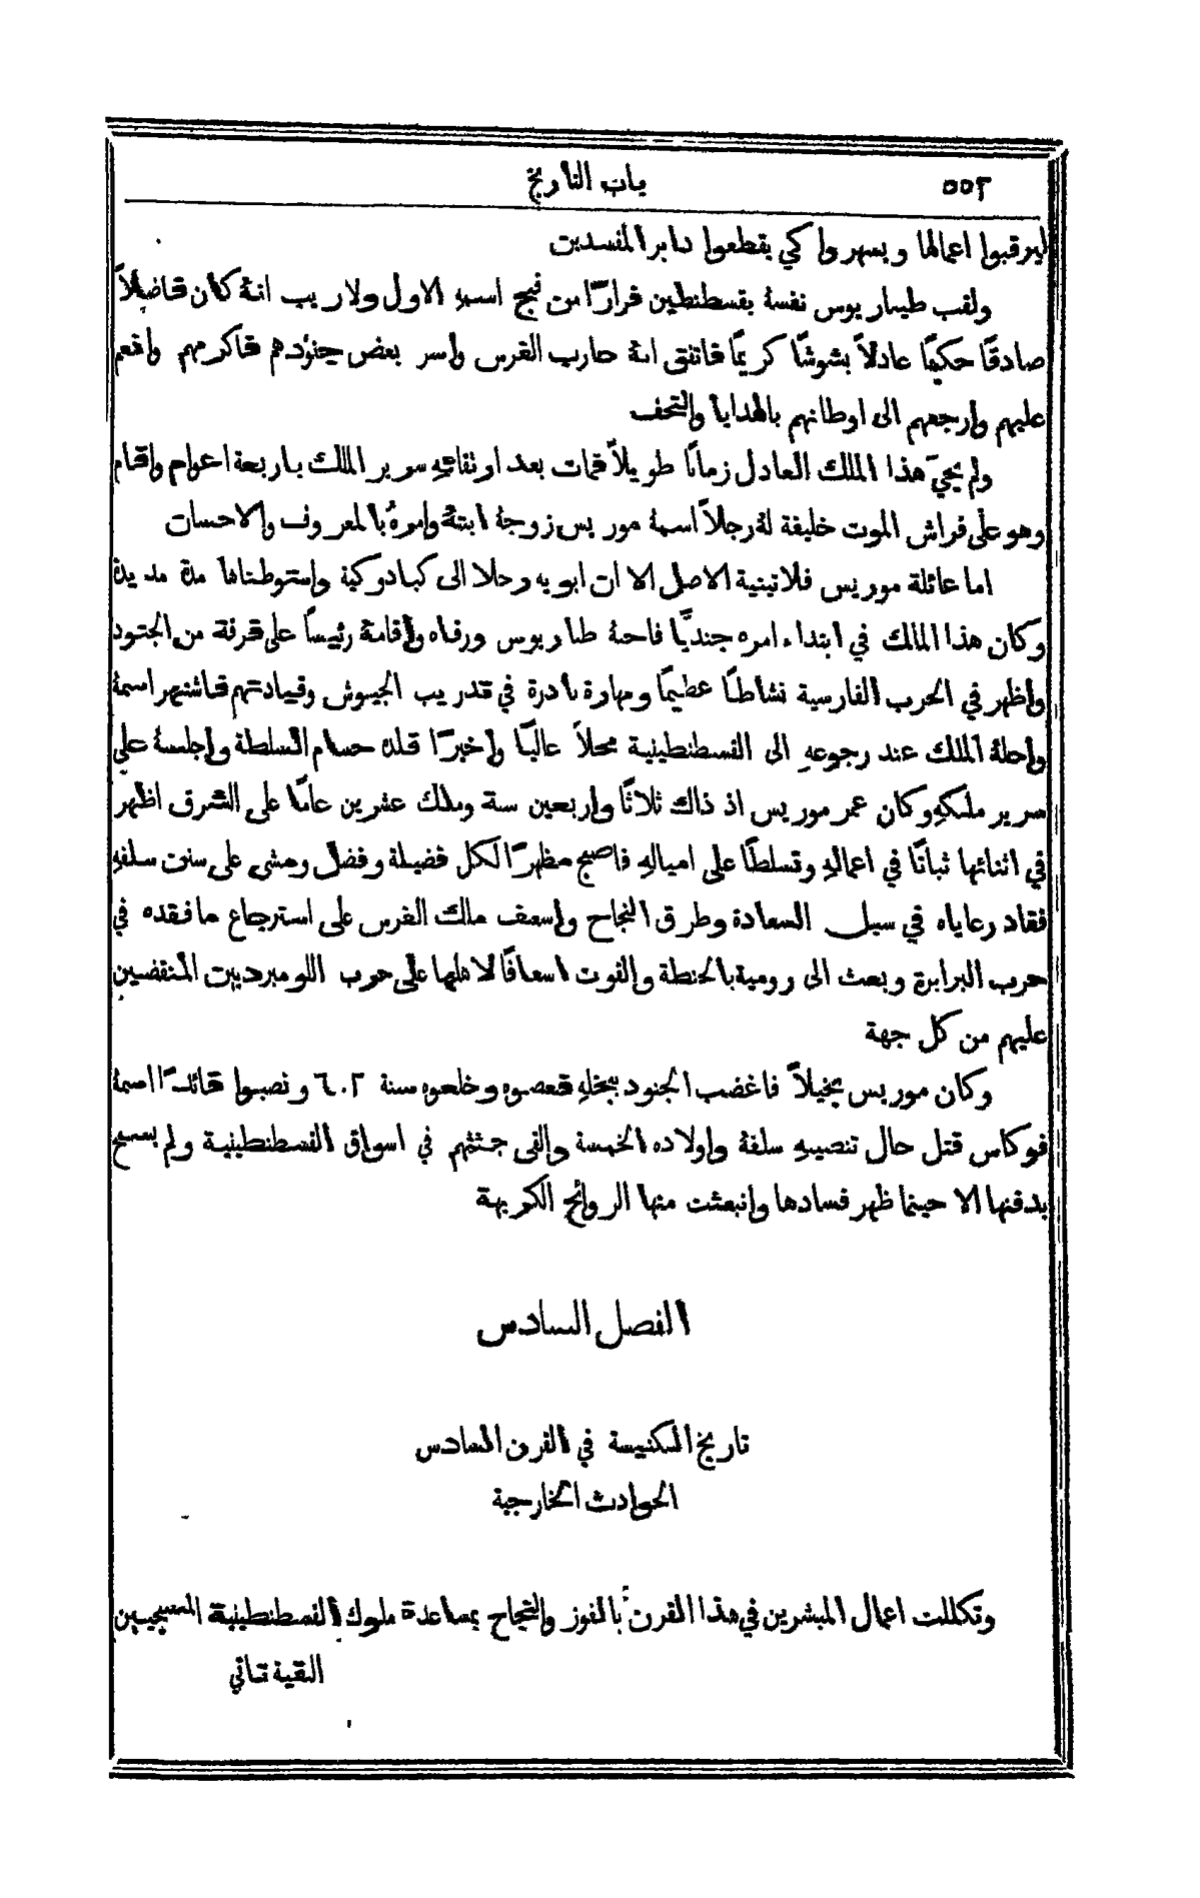 ٥٥٢
باب التاريخ
ليرقبوا اعمالها ويسهروا كي يقطعوا دابر المفسدين
ولقب طيباريوس نفسهُ بقسطنطين فرارًا من قبح اسمهِ الاول ولا ريب انهُ كان فاضلاً
صادقًا حكيمًا عادلاً بشوشًا كريمًا فاتفق انهُ حارب الفرس واسر بعض جنودهم فاكرمهم وانعم
عليهم وارجعهم الى اوطانهم بالهدايا والتحف
ولم يحيَ هذا الملك العادل زمانًا طويلاً فمات بعد ارتقائهِ سرير الملك باربعة اعوام واقام
وهو على فراش الموت خليفة لهُ رجلاً اسمهُ موريس زوجهُ ابنتهُ وامرهُ بالمعروف والاحسان
اما عائلة موريس فلاتينية الاصل الا ان ابويه رحلا الى كبادوكية واستوطناها مدة مديدة
وكان هذا المالك في ابتداء امره جنديًّا فاحبهُ طباريوس ورقاه واقامهُ رئيسًا على فرقة من الجنود
واظهر في الحرب الفارسية نشاطًا عظيمًا ومهارة نادرة في تدريب الجيوش وقيادتهم فاشتهر اسمهُ
واحلهُ الملك عند رجوعهِ الى القسطنطينية محلاً عاليًا واخيرًا قلده حسام السلطة واجلسهُ على
سرير ملكهِ وكان عمر موريس اذ ذاك ثلاثًا واربعين سنة وملك عشرين عامًا على الشرق اظهر
في اثنائها ثباتًا في اعمالهِ وتسلطًا على اميالهِ فاصبح مظهرًا لكل فضيلة وفضل ومشى على سنن سلفهِ
فقاد رعاياه في سبل السعادة وطرق النجاح واسعف ملك الفرس على استرجاع ما فقده في
حرب البرابرة وبعث الى رومية بالحنطة والقوت اسعافًا لاهلها على حرب اللومبرديين المنقضين
عليهم من كل جهة
وكان موريس بخيلاً فاغضب الجنود ببخلهِ فعصوه وخلعوه سنة ٦٠٢ ونصبوا قائدًا اسمهُ
فوكاس قتل حال تنصيبهِ سلفهُ واولاده الخمسة والقى جثثهم في اسواق القسطنطينية ولم يسمح
بدفنها الا حينما ظهر فسادها وانبعثت منها الروائح الكريهة
الفصل السادس
تاريخ الكنيسة في القرن السادس
الحوادث الخارجية
وتكللت اعمال المبشرين في هذا القرن بالفوز والنجاح بمساعدة ملوك القسطنطينية المسيحيين
البقية تاتي